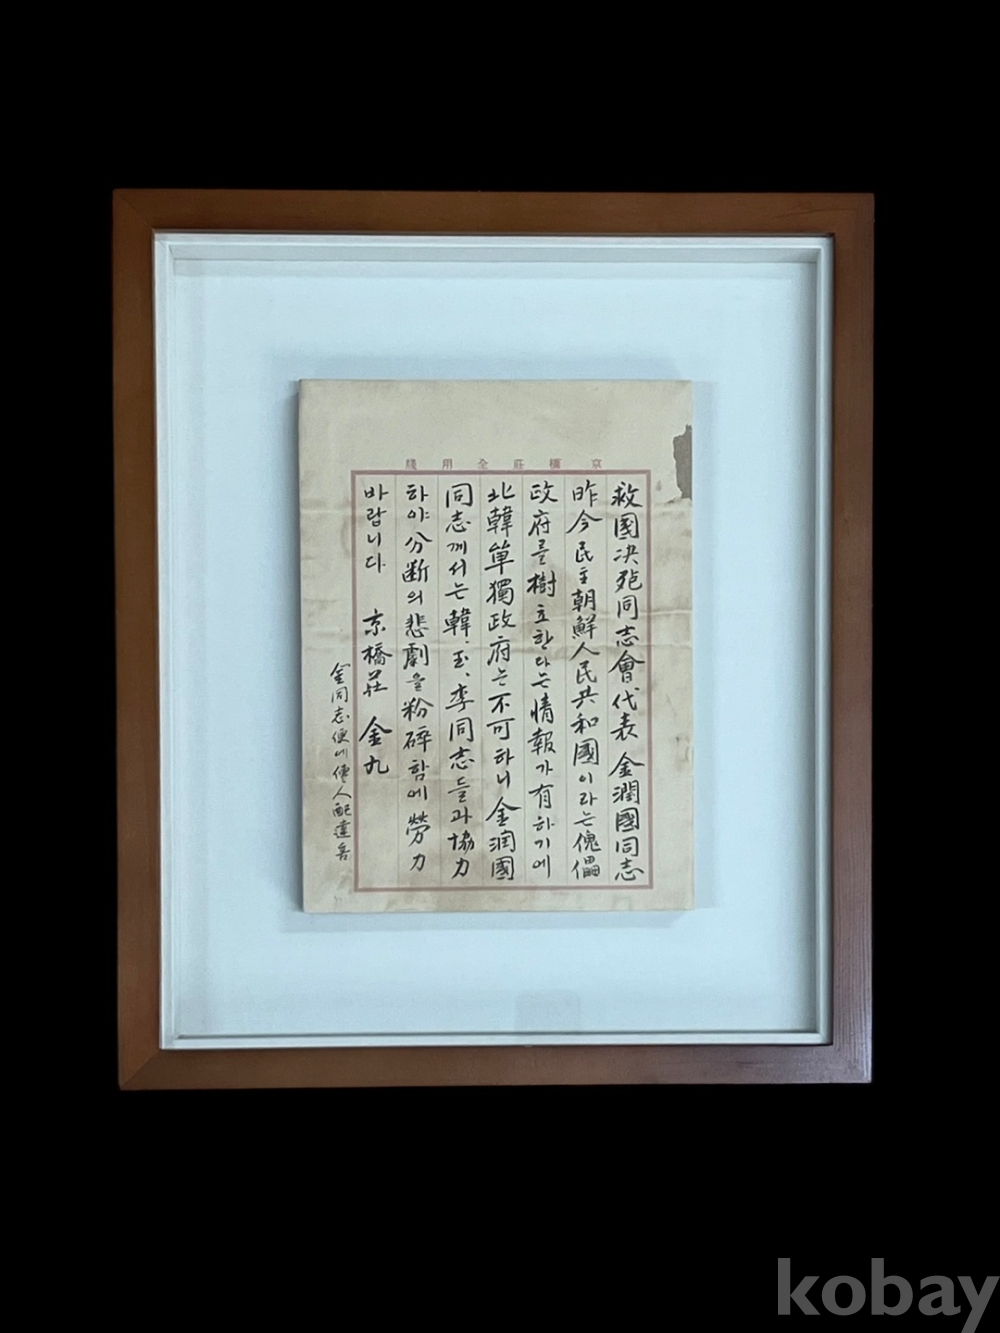 京橋莊全用牋
救國决死同志會代表 金潤國同志
昨今民主朝鮮人民共和國이라는傀儡
政府를樹立한다는情報가有하기에
北韓單獨政府는不可하니金潤國
同志께서는韓、玉、李同志들과協力
하야分断의悲劇을粉碎함에勞力
바랍니다 京橋莊 金九
金同志便에 人配達
kobay